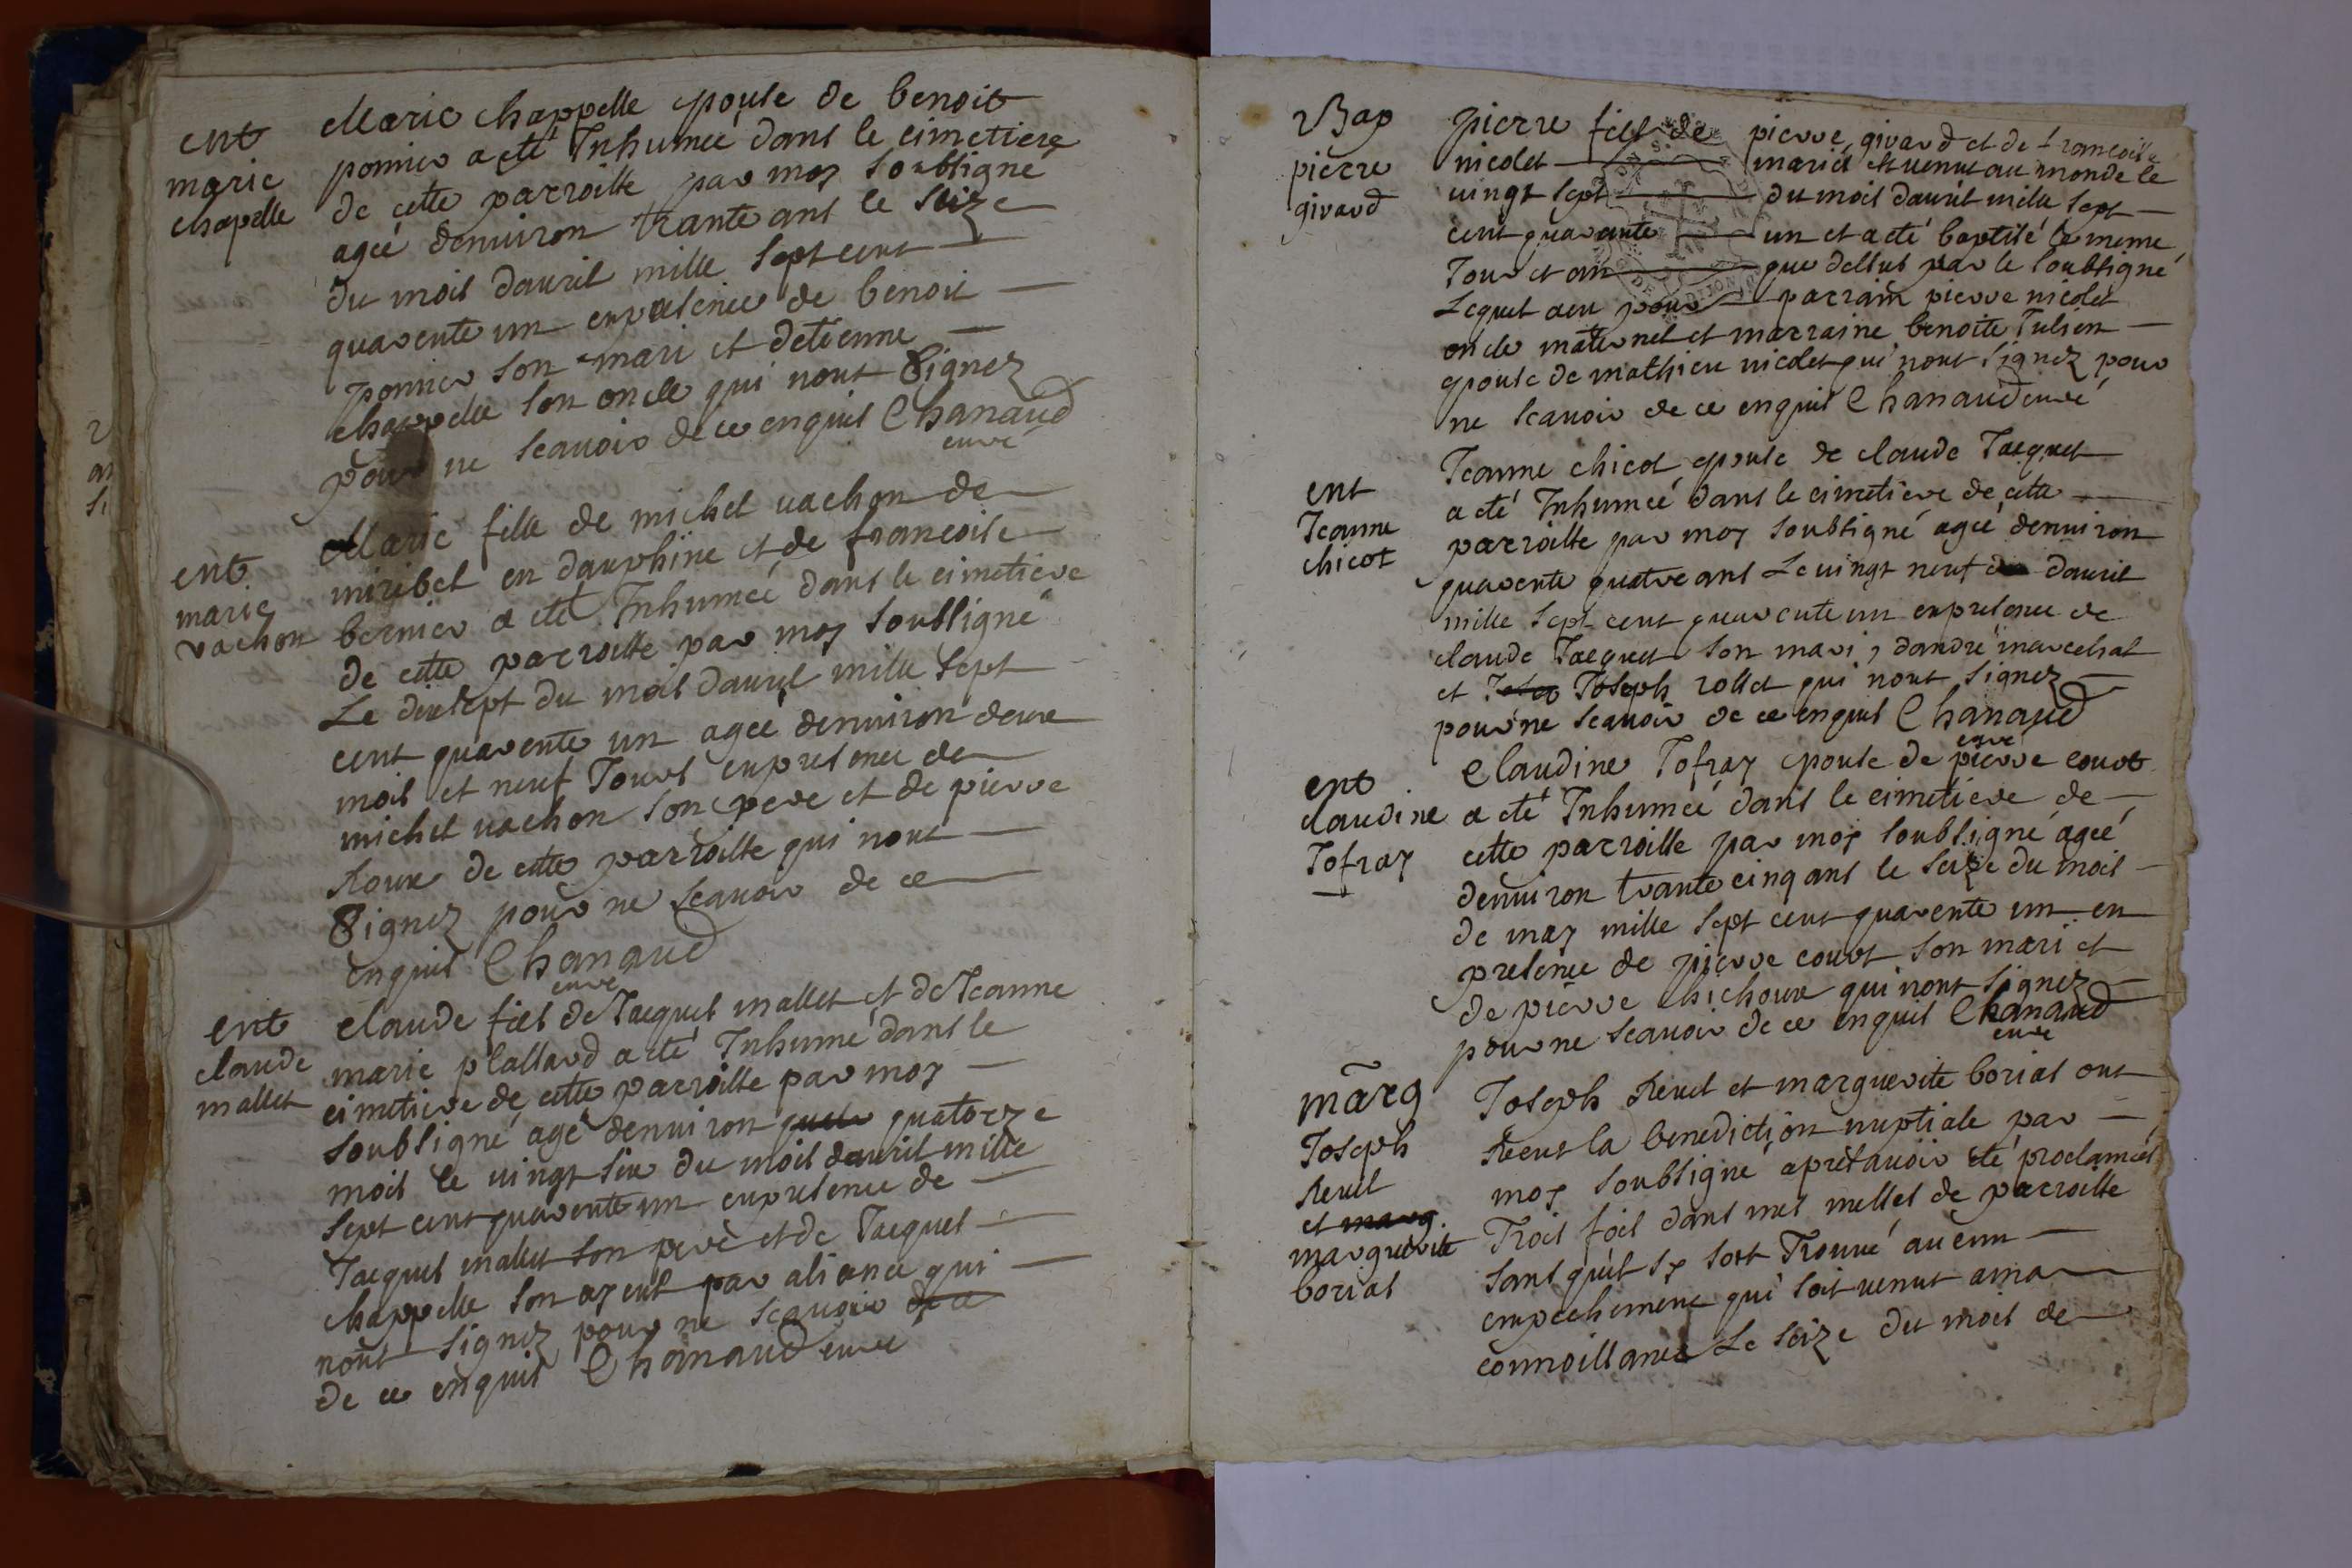 ent
marie
chapelle
Marie chappelle epouse de benoit
ponnier a eté Inhumeé dans le cimetiere
de cette parroisse par moy soubsigné
ageé denuiron trante ans le seize
du mois dauril mille sept cent
quarente un enpresence de benoit
ponnier son mari et detienne
chappelle son oncle qui nont signez
pour ne scauoir de ce enquis Chanaud
curé
ent
marie
vachon
Marie fille de michel uachon de
miribel en dauphine et de francoise
bernier a eté Inhumeé dans le cimetiere
de cette parroisse par moy soubsigné
Le dixsept du mois dauril mille sept
cent quarente un ageé denuiron deux
mois et neuf Jours enpresence de
michel uachon son pere et de pierre
Roux de cette parroisse qui nont
signez pour ne scauoir de ce
enquis Chanaud
curé
ent
claude
mallet
claude fils de Jacques mallet et de Jeanne
marie plassard a eté Inhumé dans le
cimetiere de cette parroisse par moy
soubsigné agé denuiron quatorze
mois le uingt six du mois dauril mille
sept cent quarente un enpresence de
Jacques mallet son pere et de Jacques
chappelle son ayeul par aliance qui
nont signez pour ne scauoir de ce
de ce enquis Chanaud curé
Bap
pierre
girard
pierre fils de pierre girard et de francoise
nicolet mariés est uenu au monde le
uingt sept du mois dauril mille sept
cent quarante un et a eté baptisé le meme
Jour et an que dessus par le soubsigné
Lequel a eu pour parrain pierre nicolet
oncle maternel et marraine benoite Julien
epouse de mathieu nicolet qui nont signez pour
ne scauoir de ce enquis Chanaud curé
ent
Jeanne
chicot
Jeanne chicot epouse de claude Jacquet
a eté Inhumeé dans le cimetiere de cette
parroisse par moy soubsigné ageé denuiron
quarente quatre ans Le uingt neuf dauril
mille sept cent quarente un enpresence de
claude Jacquet son mari, dandré marechal
et Joseph rollet qui nont signez
pour ne scauoir de ce enquis Chanaud
curé
ent
claudine
Jofray
Claudine Jofray epouse de pierre court
a eté Inhumeé dans le cimetiere de
cette parroisse par moy soubsigné ageé
denuiron trante cinq ans le seize du mois
de may mille sept cent quarente un en
presence de pierre court son mari et
de pierre chichoux qui nont signez
pour ne scauoir de ce enquis Chanaud
curé
marg
Joseph
Revel
et marg.
marguerite
borias
Joseph Revel et marguerite borias ont
Receu la benediction nuptiale par
moy soubsigné apres auoir eté proclamés
Trois fois dans mes messes de parroisse
sans quil sy soit Trouué aucun
empechement qui soit uenut a ma
connoissance Le seize du mois de